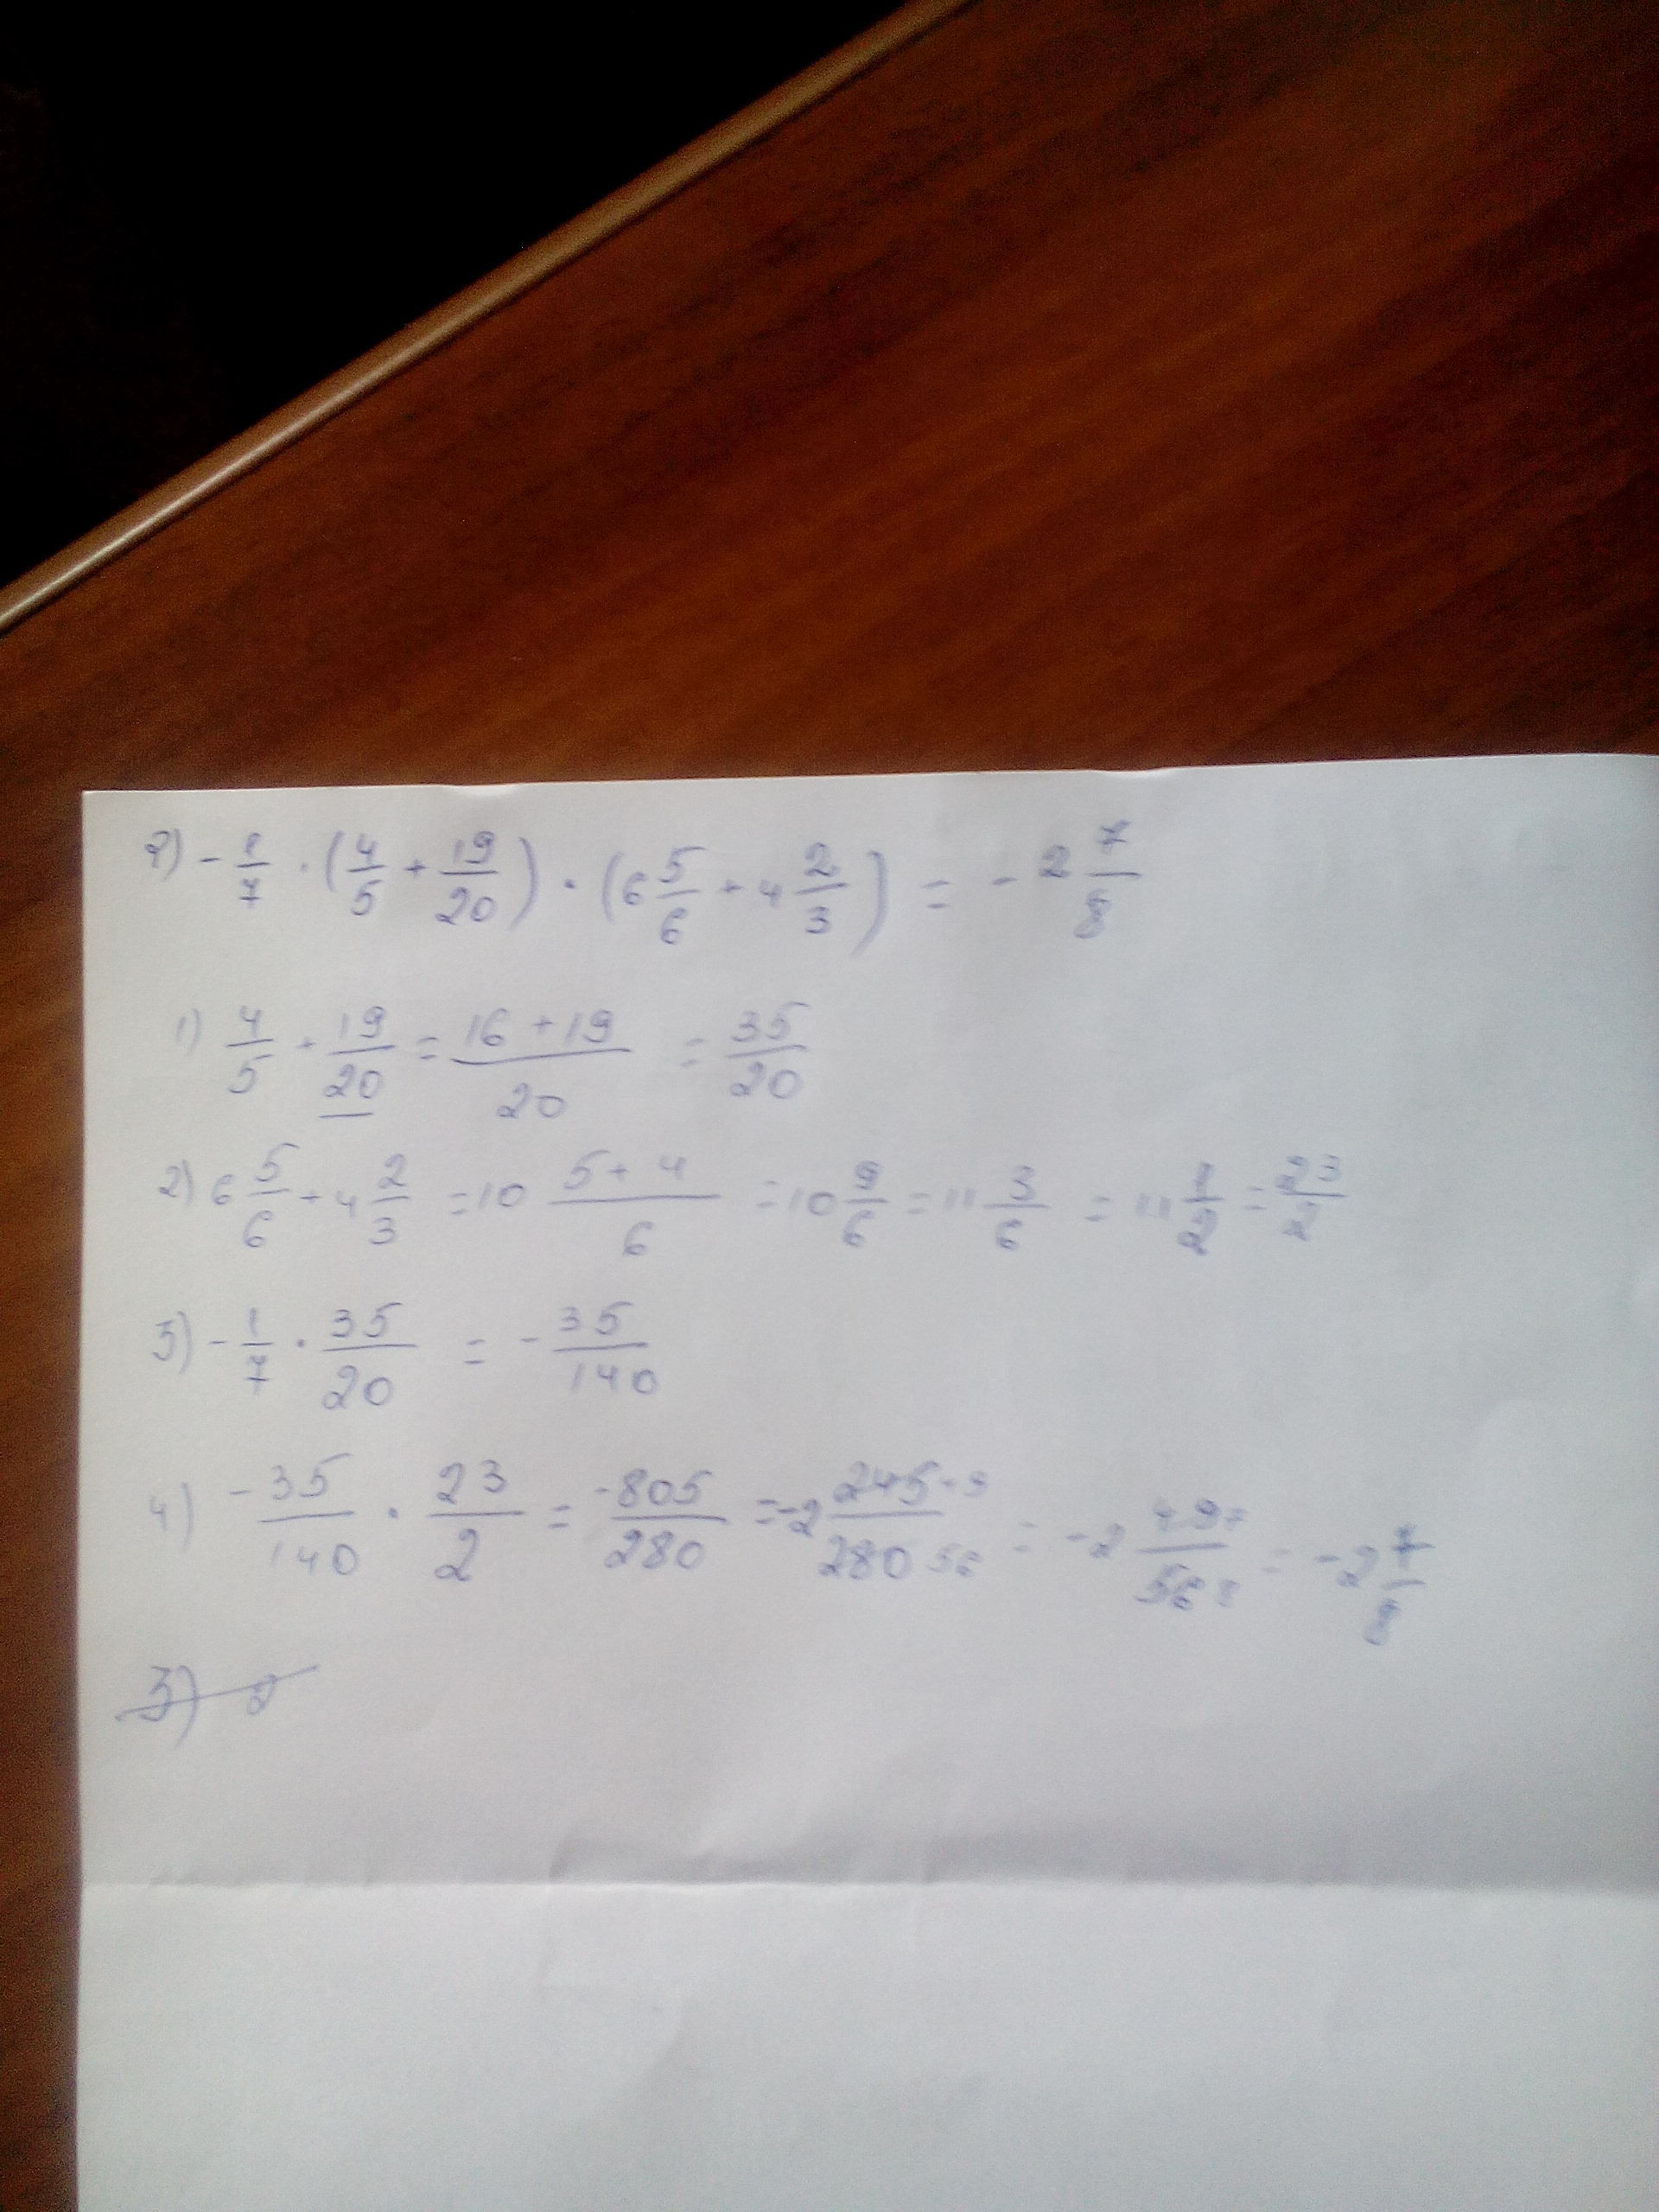 2) - 1/7 · (4/5 + 19/20) · (6 5/6 + 4 2/3) = - 2 7/8
1) 4/5 + 19/20 = 16 + 19/20 = 35/20
2) 6 5/6 + 4 2/3 = 10 5 + 4/6 = 10 9/6 = 11 3/6 = 11 1/2 = 23/2
3) - 1/7 · 35/20 = - 35/140
4) - 35/140 · 23/2 = - 805/280 = - 2 245/280 56 = - 2 49 7/56 8 = - 2 7/8
3) 2